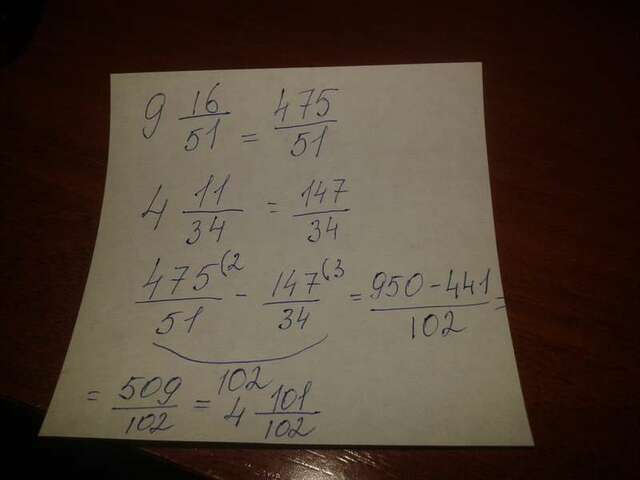 9 16/51 = 475/51
4 11/34 = 147/34
475(2/51 - 147(3/34 = 950-441/102 =
102
= 509/102 = 4 101/102